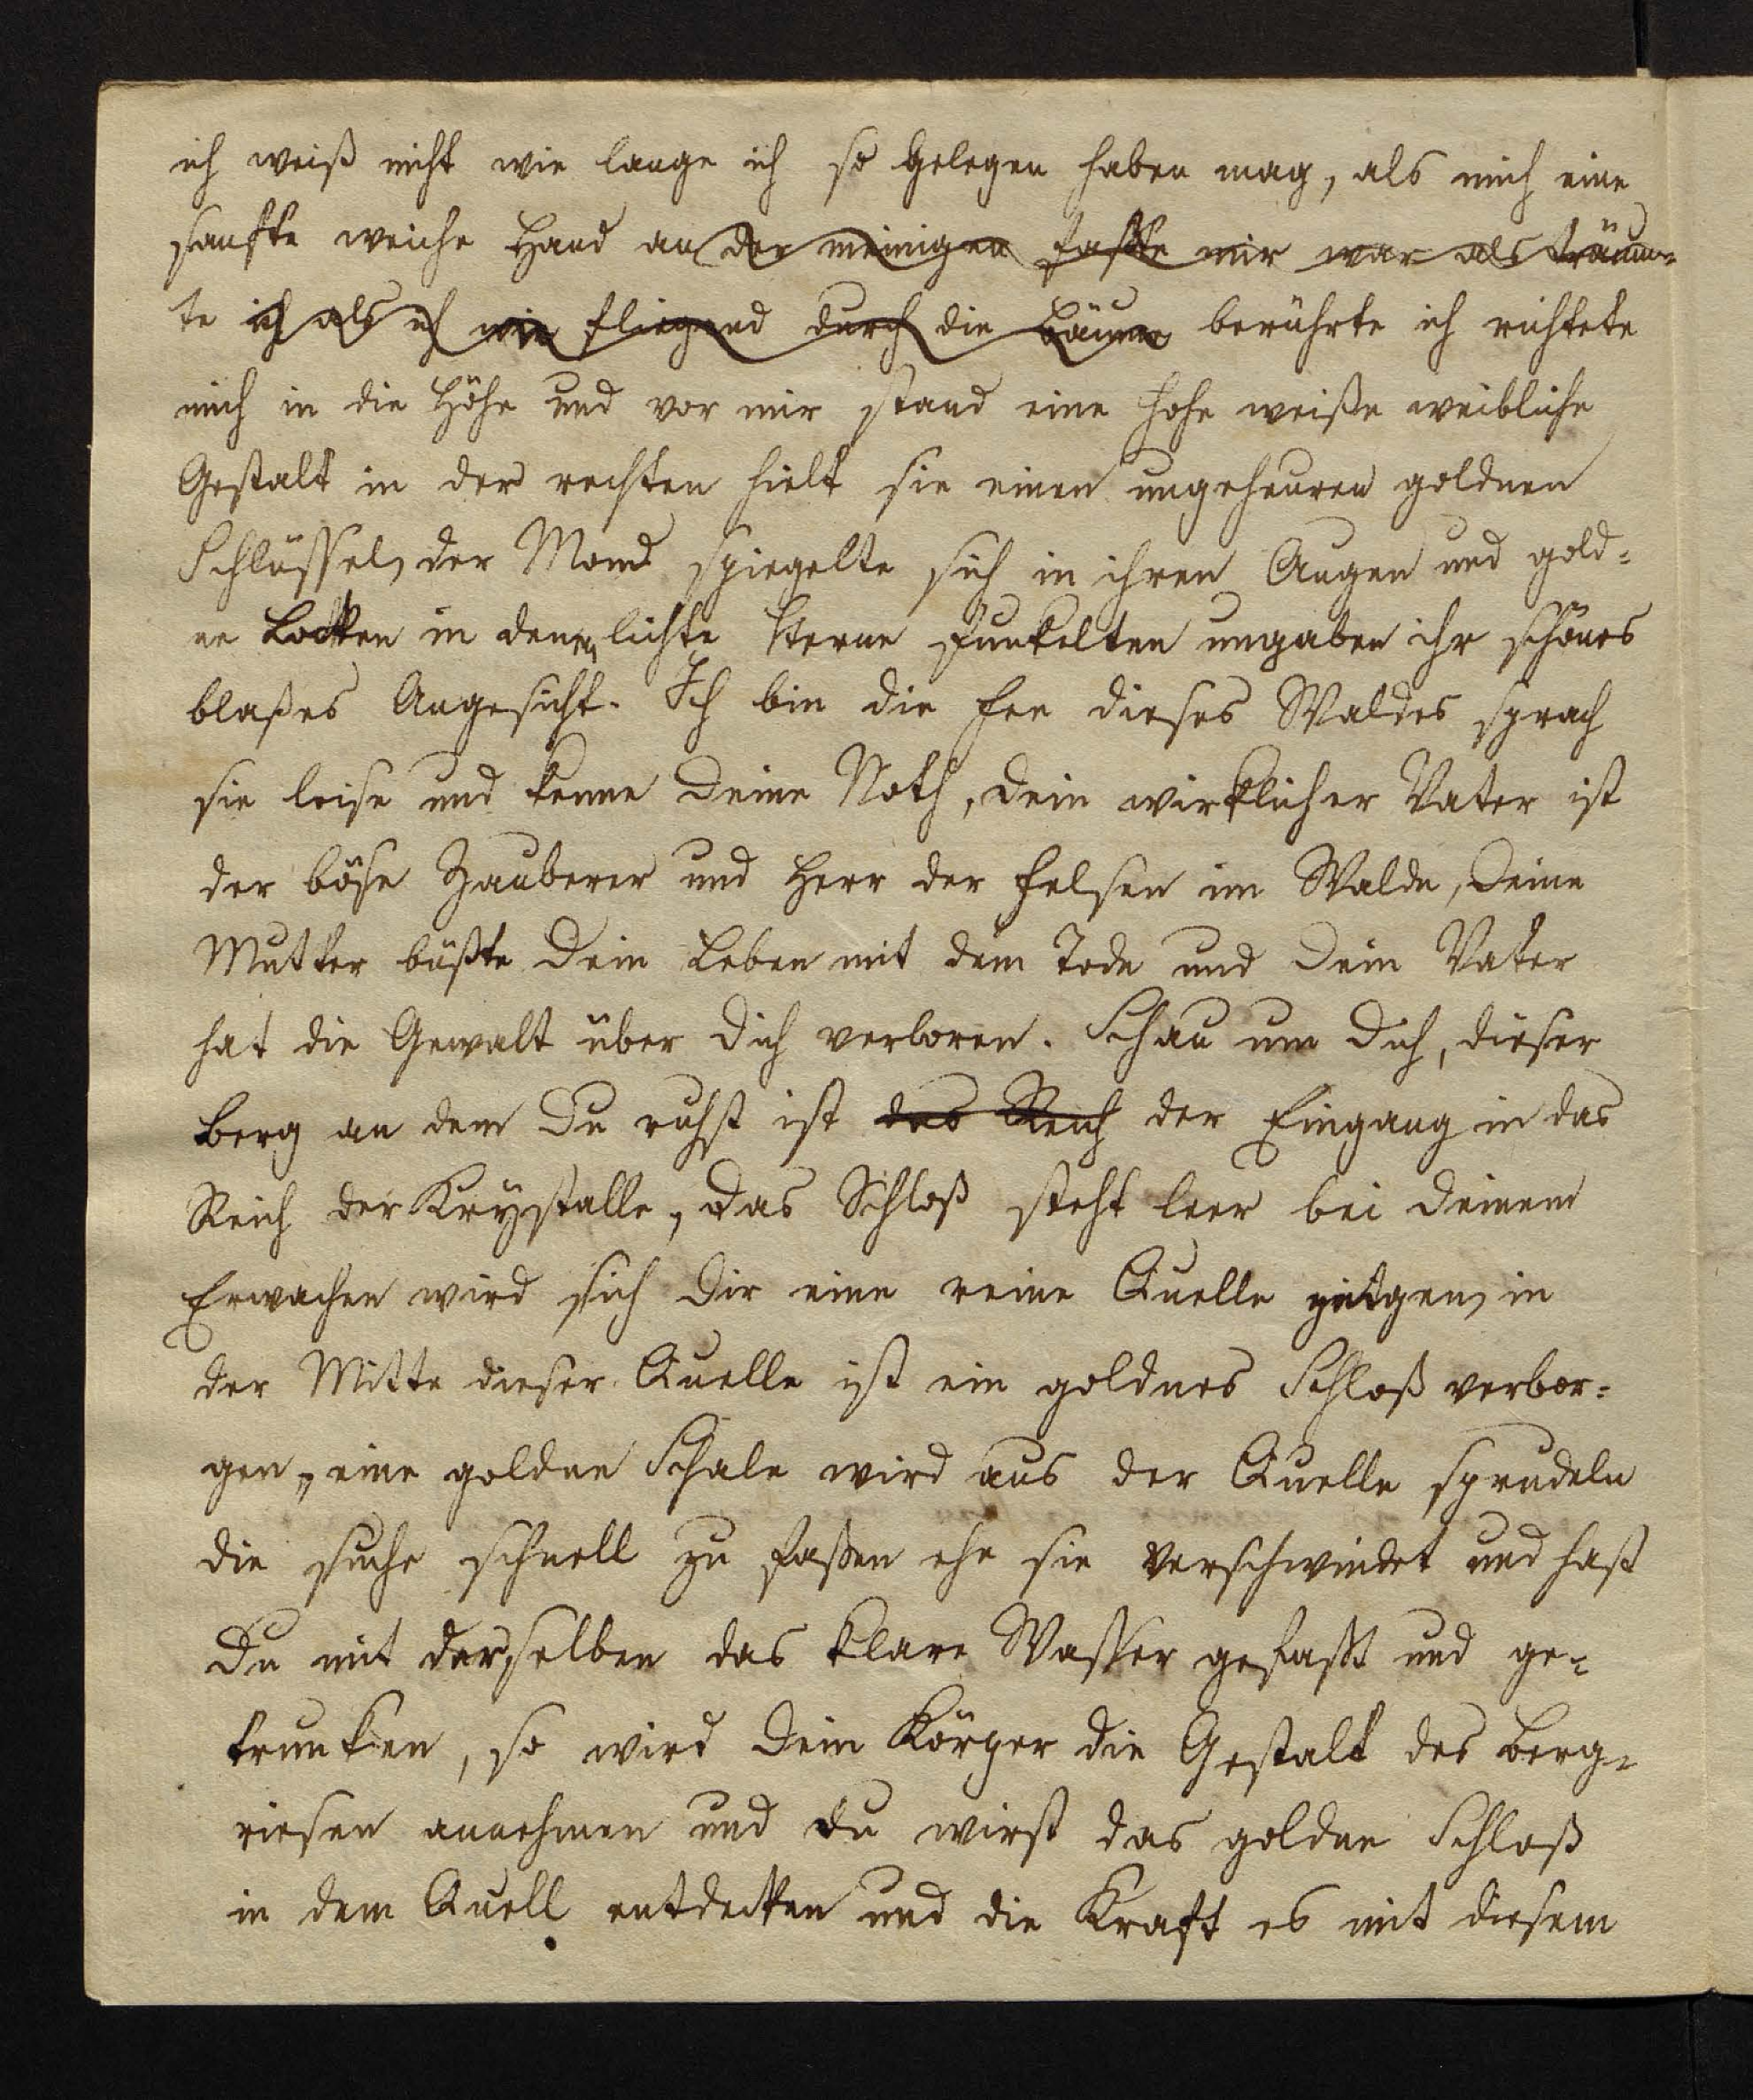 ich weiß nicht wie lange ich so gelegen haben mag, als mich eine
sanfte weiche Hand an der meinigen faßte mir war als träum-
te ich als ich wie fliegend durch die Bäume berührte ich richtete
mich in die Höhe und vor mir stand eine hohe weiße weibliche
Gestalt in der rechten hielt sie einen ungeheuren goldnen
Schlüssel, der Mond spiegelte sich in ihren Augen und gold-
ne Locken in denen lichte Sterne funkelten umgaben ihr schönes
blaßes Angesicht. Ich bin die Fee dieses Waldes sprach
sie leise und kenne Deine Noth, Dein wirklicher Vater ist
der böse Zauberer und Herr der Felsen im Walde, Deine
Mutter büßte Dein Leben mit dem Tode und Dein Vater
hat die Gewalt über Dich verloren. Schau um Dich, dieser
Berg an dem Du ruhst ist das Reich der Eingang in das
Reich der Krystalle, das Schloß steht leer bei Deinem
Erwachen wird sich Dir eine reine Quelle zeigen, in
der Mitte dieser Quelle ist ein goldnes Schloß verbor-
gen, eine goldne Schale wird aus der Quelle sprudeln
die suche schnell zu faßen ehe sie verschwindet und hast
Du mit derselben das klare Wasser gefaßt und ge-
trunken, so wird Dein Körper die Gestalt des Berg-
riesen annehmen und Du wirst das goldne Schloß
in dem Quell entdecken und die Kraft es mit diesem